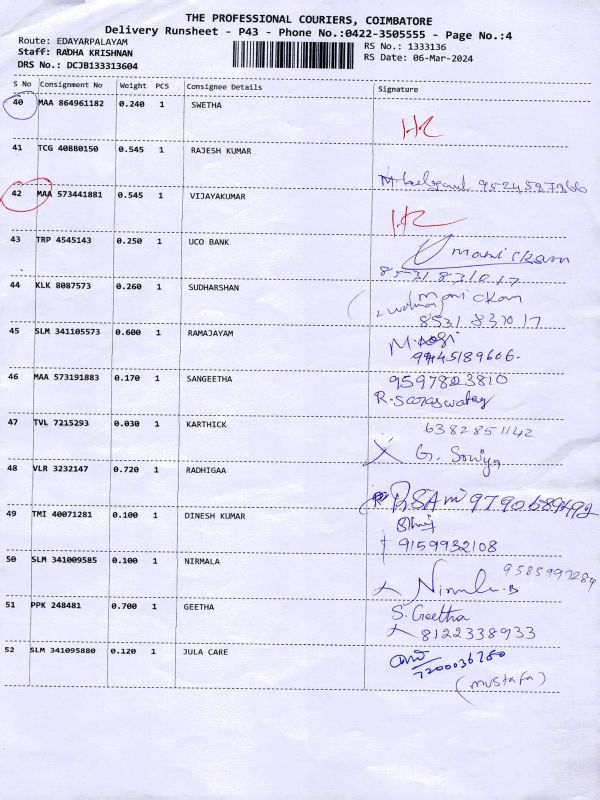 THE PROFESSIONAL COURIERS, COIMBATORE
Delivery Runsheet - P43 - Phone No.:0422-3505555 - Page No.:4
Route: EDAYARPALAYAM
Staff: RADHA KRISHNAN
DRS No.: DCJB133313604
RS No.: 1333136
RS Date: 06-Mar-2024
S No Consignment No Weight PCS Consignee Details Signature
40 MAA 864961182 0.240 1 SWETHA
41 TCG 40880150 0.545 1 RAJESH KUMAR
9524587366
42 MAA 573441881 0.545 1 VIJAYAKUMAR
43 TRP 4545143 0.250 1 UCO BANK
manickam
8531831017
44 KLK 8087573 0.260 1 SUDHARSHAN
manickam
8531831017
45 SLM 341105573 0.600 1 RAMAJAYAM
9445189606.
46 MAA 573191883 0.170 1 SANGEETHA
9597823810
R.Saraswathy
47 TVL 7215293 0.030 1 KARTHICK
6382851142
G. Soniya
48 VLR 3232147 0.720 1 RADHIGAA
49 TMI 40071281 0.100 1 DINESH KUMAR
9159932108
50 SLM 341009585 0.100 1 NIRMALA
9585997284
Nirmala.B
51 PPK 248481 0.700 1 GEETHA
S. Geetha
8122338933
52 SLM 341095880 0.120 1 JULA CARE
7200036780
(mustafa)